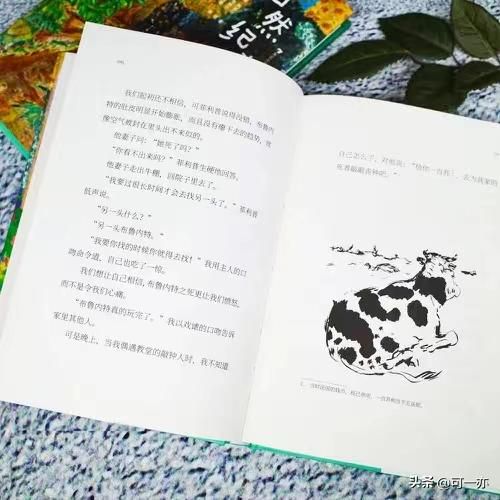 然
纪
我们起初还不相信,可菲利普说得没错,布鲁内
特的肚皮明显开始膨胀,而且没有瘪下去的趋势,就
像空气被封在里头出不来似的。
他妻子问:“她死了吗?”
“你看不出来吗?”菲利普生硬地回答。
他妻子走出牛棚,回院子里去了。
“我要过很长时间才会去找另一头了。”菲利普
低声说。
“另一头什么?”
“另一头布鲁内特。”
“我要你找的时候你就得去找!”我用主人的口
吻命令道,自己也吃了一惊。
我们想让自己相信,布鲁内特之死更让我们愤怒,
而不是令我们心痛。
“布鲁内特真的玩完了。”我以戏谑的口吻告诉
家里其他人。
可是晚上,当我偶遇教堂的敲钟人时,我不知道
自己怎么了,对他说:“给你一百苏,去为我家的
死者敲敲丧钟吧。”
头条 @可一亦